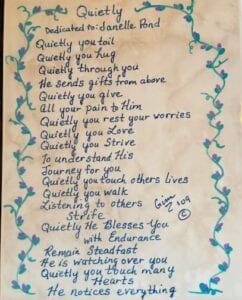 Quietly
Dedicated to: Janelle Pond
Quietly you toil
Quietly you hug
Quietly through you
He sends gifts from above
Quietly you give
All your pain to Him
Quietly you rest your worries
Quietly you Love
Quietly you Strive
To understand His
Journey for you
Quietly you touch others lives
Quietly you walk
Listening to others
Strife
Quietly He Blesses You
with Endurance
Remain Steadfast
He is watching over you
Quietly you touch many
Hearts
He notices everything
©